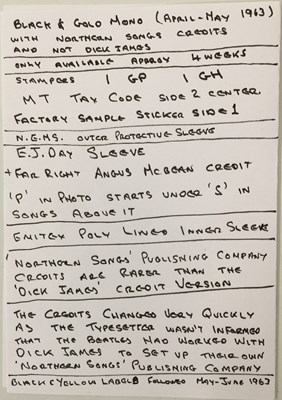 BLACK & GOLD MONO (APRIL-MAY 1963)
WITH NORTHERN SONGS CREDITS
AND NOT DICK JAMES
ONLY AVAILABLE APPROX 4 WEEKS
STAMPERS 1 GP 1 GH
MT TAX CODE SIDE 2 CENTER
FACTORY SAMPLE STICKER SIDE 1
N.E.M.S. OUTER PROTECTIVE SLEEVE
E.J. DAY SLEEVE
+ FAR RIGHT ANGUS MCBEAN CREDIT
'P' IN PHOTO STARTS UNDER 'S' IN
SONGS ABOVE IT
EMITEX POLY LINED INNER SLEEVE
'NORTHERN SONGS' PUBLISHING COMPANY
CREDITS ARE RARER THAN THE
'DICK JAMES' CREDIT VERSION
THE CREDITS CHANGED VERY QUICKLY
AS THE TYPESETTER WASN'T INFORMED
THAT THE BEATLES HAD WORKED WITH
DICK JAMES TO SET UP THEIR OWN
'NORTHERN SONGS' PUBLISHING COMPANY
BLACK & YELLOW LABELS FOLLOWED MAY-JUNE 1963